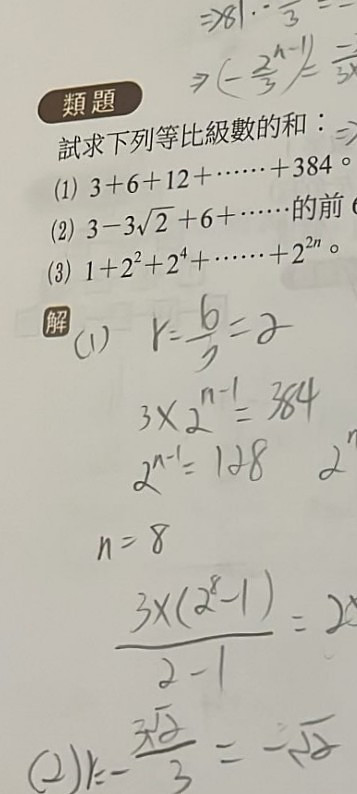 ⇒81·-
3
⇒(-2^{n-1}/3)=
類題
試求下列等比級數的和：
(1) 3+6+12+⋯⋯+384。
(2) 3-3√2+6+⋯⋯的前6
(3) 1+2²+2⁴+⋯⋯+2²ⁿ。
解
(1) r=6/3=2
3×2^{n-1}=384
2^{n-1}=128 2^n
n=8
3×(2⁸-1)/2-1 = 2
(2) r=-3√2/3 = -√2